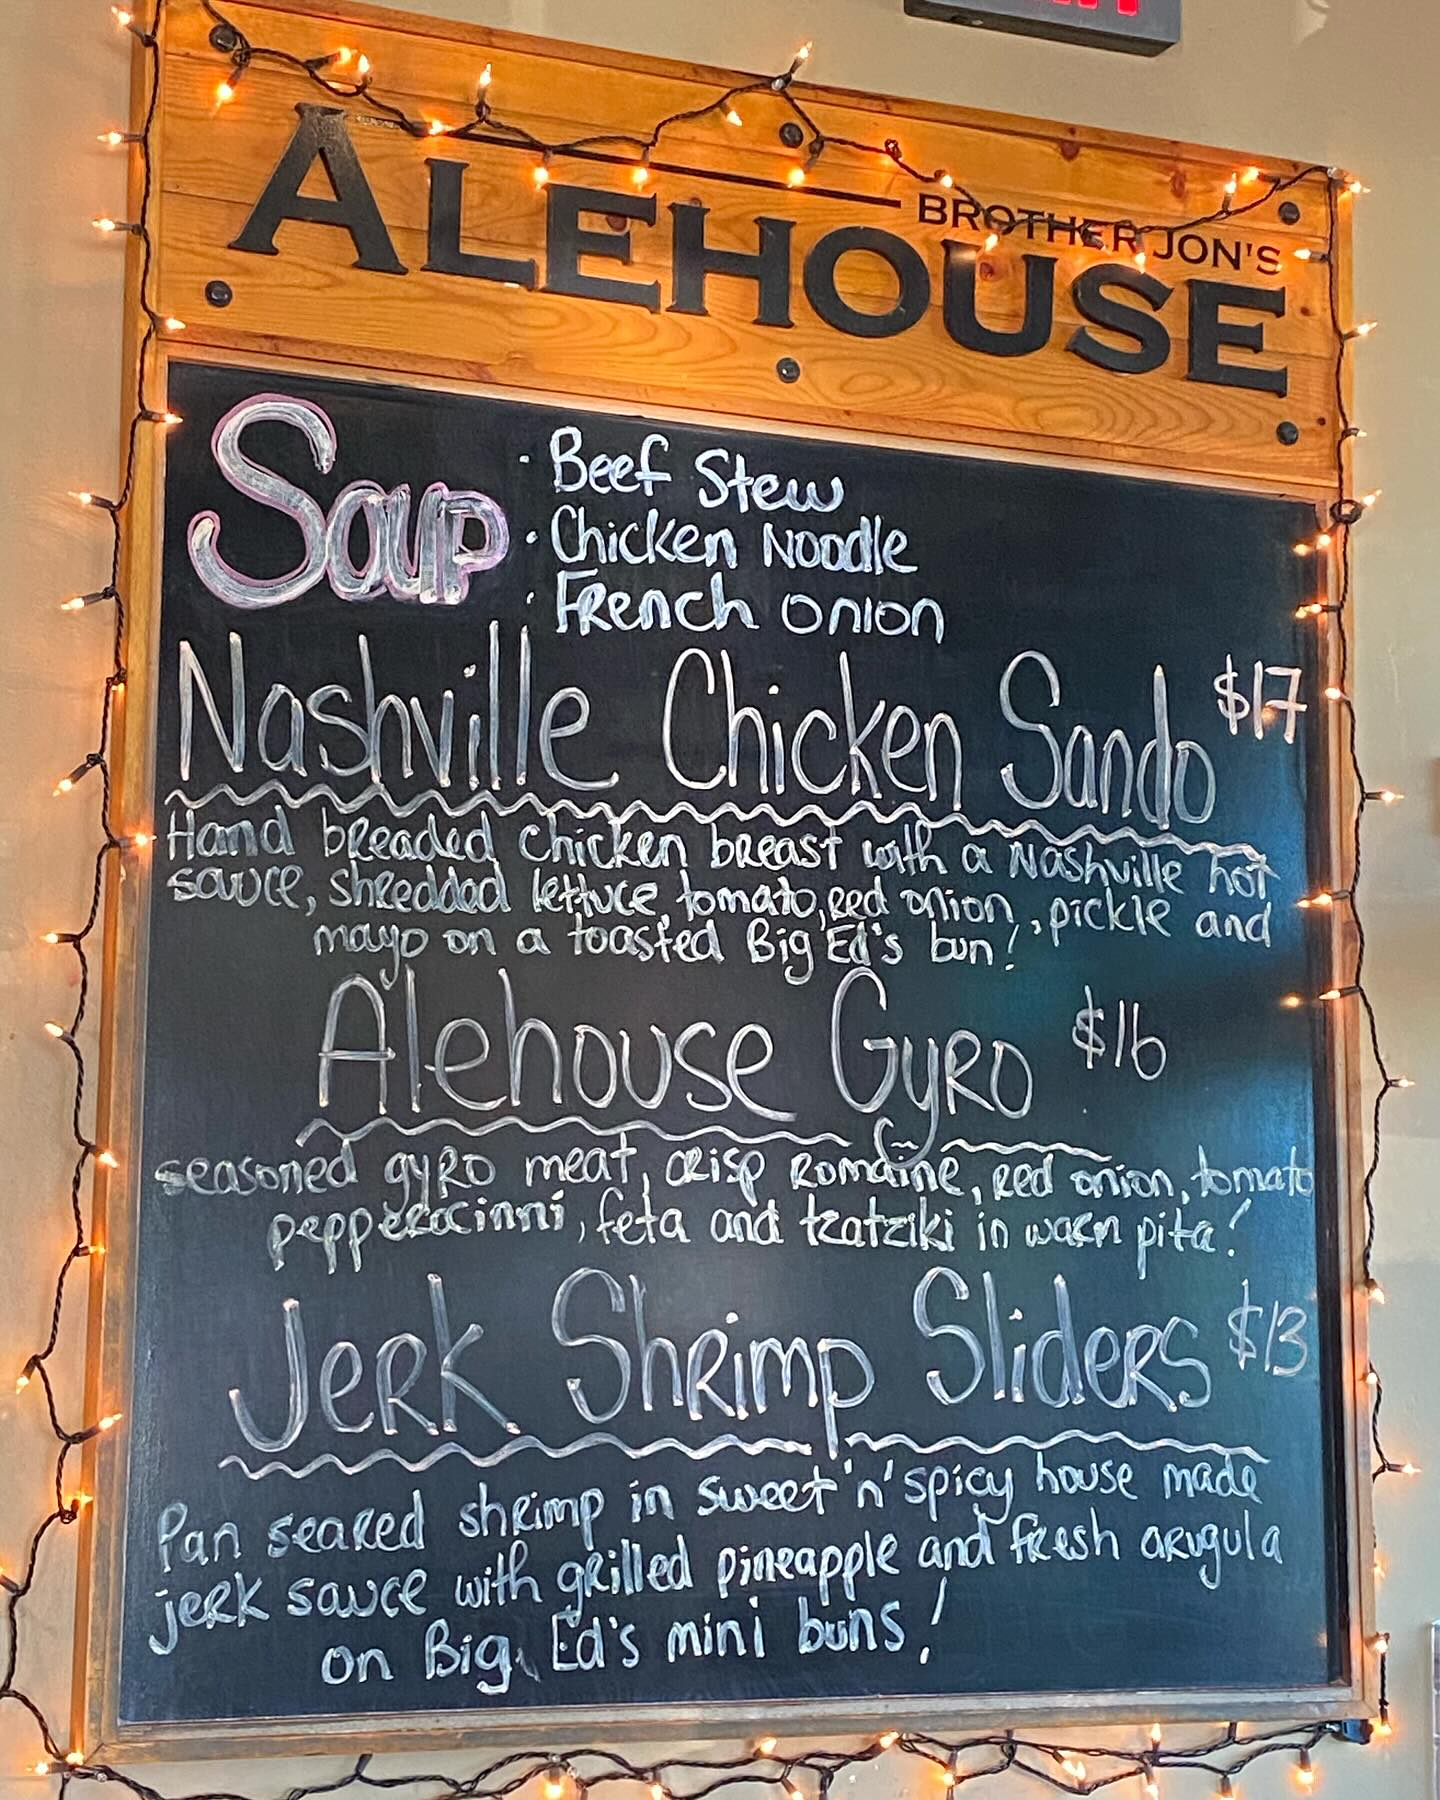 BROTHER JON'S
ALEHOUSE
Soup
· Beef Stew
· Chicken Noodle
· French Onion
Nashville Chicken Sando $17
Hand breaded chicken breast with a Nashville hot
sauce, shredded lettuce, tomato, red onion, pickle and
mayo on a toasted Big Ed's bun!
Alehouse Gyro $16
seasoned gyro meat, crisp romaine, red onion, tomato
pepperocinni, feta and tzatziki in warm pita!
Jerk Shrimp Sliders $13
Pan seared shrimp in sweet 'n' spicy house made
jerk sauce with grilled pineapple and fresh arugula
on Big Ed's mini buns!